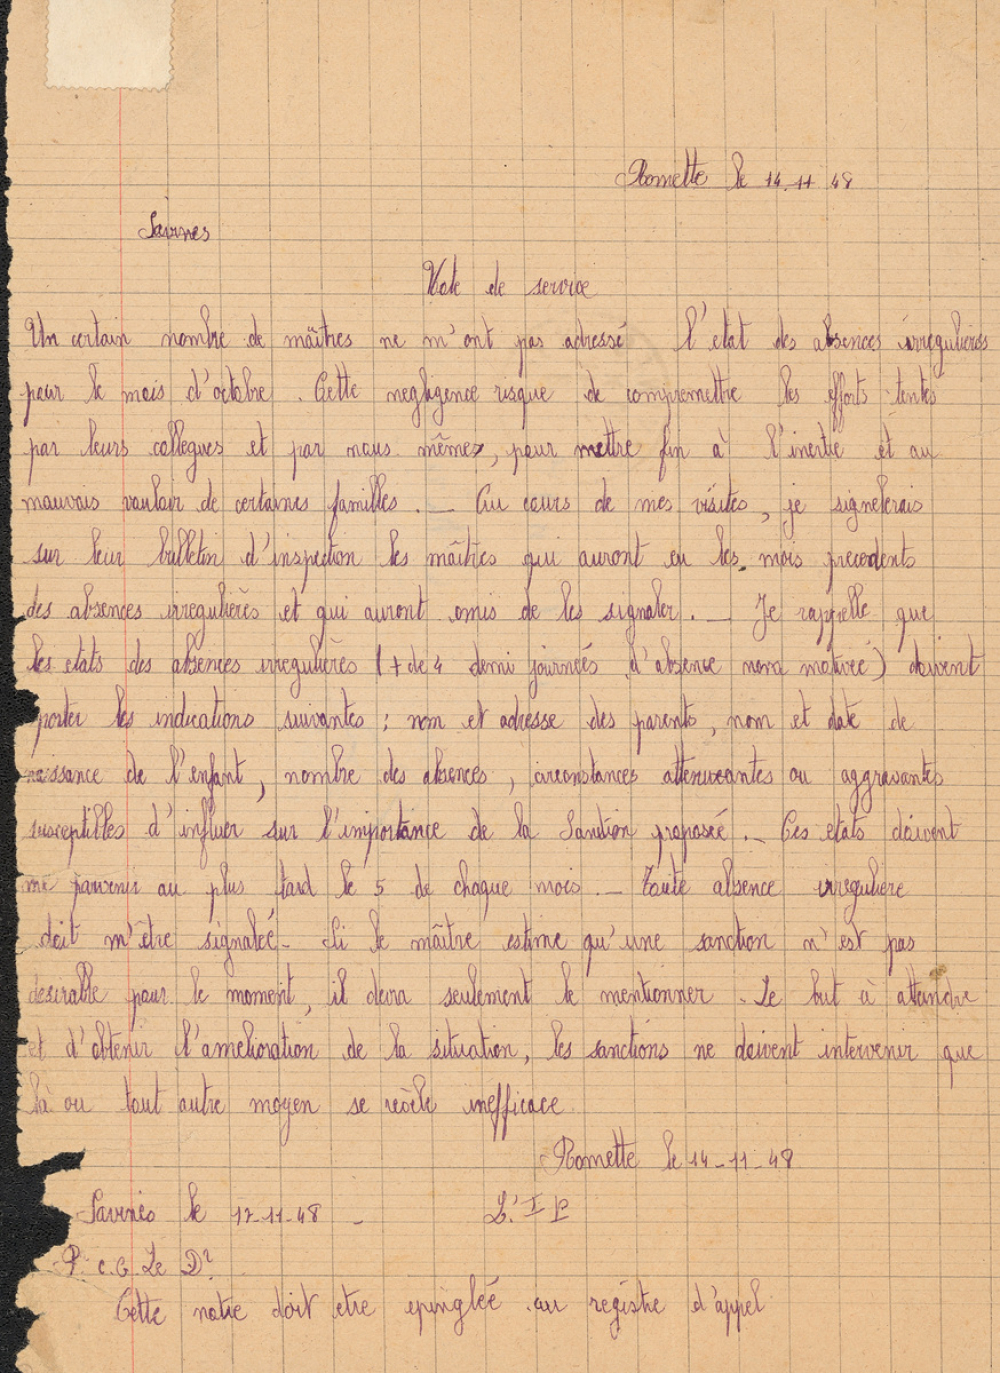 Romette le 14.11 48
Savines
Note de service
Un certain nombre de maîtres ne m'ont pas adressé l'etat des absences irregulières
pour le mois d'octobre. Cette negligence risque de compromettre les efforts tentes
par leurs collegues et par nous mêmes, pour mettre fin à l'inertie et au
mauvais vouloir de certaines familles. _ Au cours de mes visites, je signelerais
sur leur bulletin d'inspection les maîtres qui auront eu les mois precedents
des absences irregulières et qui auront omis de les signaler. _ Je rappelle que
les etats des absences irregulières (+ de 4 demi journées d'absence non motivée) doivent
porter les indications suivantes : nom et adresse des parents, nom et date de
naissance de l'enfant, nombre des absences, circonstances attenuantes ou aggravantes
susceptibles d'influer sur l'importance de la Sanction proposée. _ Ces etats doivent
me parvenir au plus tard le 5 de chaque mois. _ Toute absence irreguliere
doit m'être signalée _ Si le maître estime qu'une sanction n'est pas
desirable pour le moment, il devra seulement le mentionner. Le but à atteindre
et d'obtenir l'amelioration de la situation, les sanctions ne doivent intervenir que
là ou tout autre moyen se revèle inefficace
Romette le 14-11-48
Savines le 17-11-48 _ L'I P
P. c. c. Le Dr
Cette notre doit etre epinglée au régistre d'appel